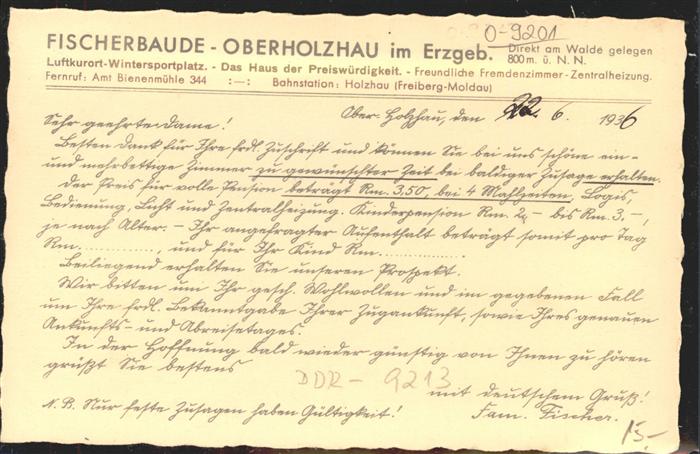 O-9201
FISCHERBAUDE - OBERHOLZHAU im Erzgeb. Direkt am Walde gelegen
800 m. ü. N. N.
Luftkurort-Wintersportplatz. - Das Haus der Preiswürdigkeit. - Freundliche Fremdenzimmer - Zentralheizung.
Fernruf: Amt Bienenmühle 344 :—: Bahnstation: Holzhau (Freiberg-Moldau)
Ober-Holzhau, den 22. 6. 1936
Sehr geehrte Dame!
Besten Dank für Ihre frdl. Zuschrift und können Sie bei uns schöne ein-
und mehrbettige Zimmer zu gewünschter Zeit bei baldiger Zusage erhalten.
Der Preis für volle Pension beträgt Rm. 3,50, bei 4 Mahlzeiten, Logis,
Bedienung, Licht und Zentralheizung. Kinderpension Rm. 2,- bis Rm. 3.-,
je nach Alter. - Ihr angefragter Aufenthalt beträgt somit pro Tag
Rm. .........., und für Ihr Kind Rm. ..........
Beiliegend erhalten Sie unseren Prospekt.
Wir bitten um Ihr gesch. Wohlwollen und im gegebenen Fall
um Ihre frdl. Bekanntgabe Ihrer Zugankunft, sowie Ihres genauen
Ankunfts- und Abreisetages.
In der Hoffnung bald wieder günstig von Ihnen zu hören
grüßt Sie bestens
DDR - 9213
mit deutschem Gruß!
N. B. Nur feste Zusagen haben Gültigkeit! Fam. Fischer.
15,-